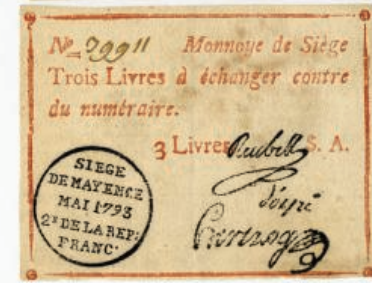 No. 39911 Monnoye de Siège
Trois Livres à échanger contre
du numéraire.
3 Livres Reubell S. A.
SIEGE
DE MAYENCE
MAI 1793
2.E DE LA REP:
FRANC.